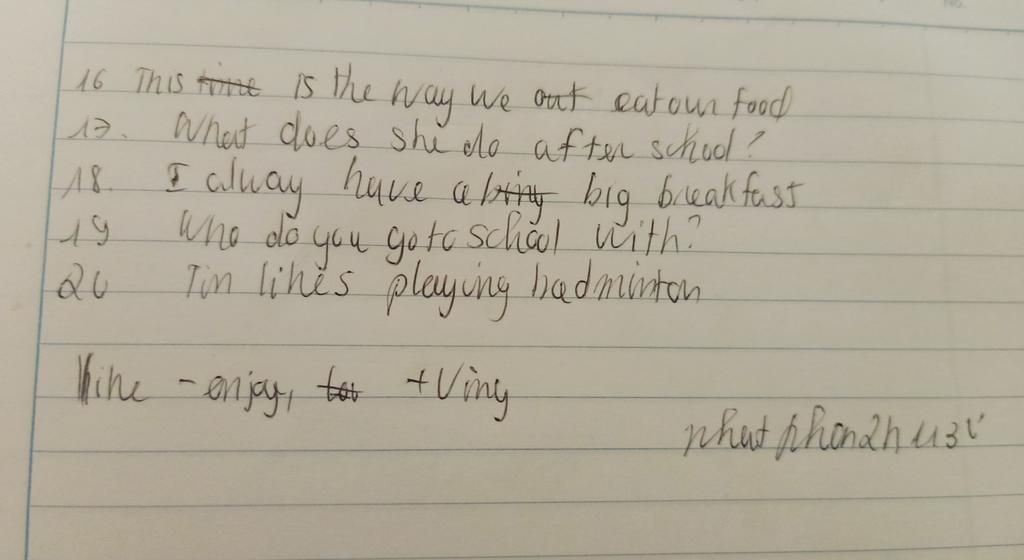 16 This time is the way we out eat our food
17. What does she do after school?
18. I alway have a bring big breakfast
19 Who do you go to school with?
20 Tin likes playing badminton
like - enjoy, +Ving